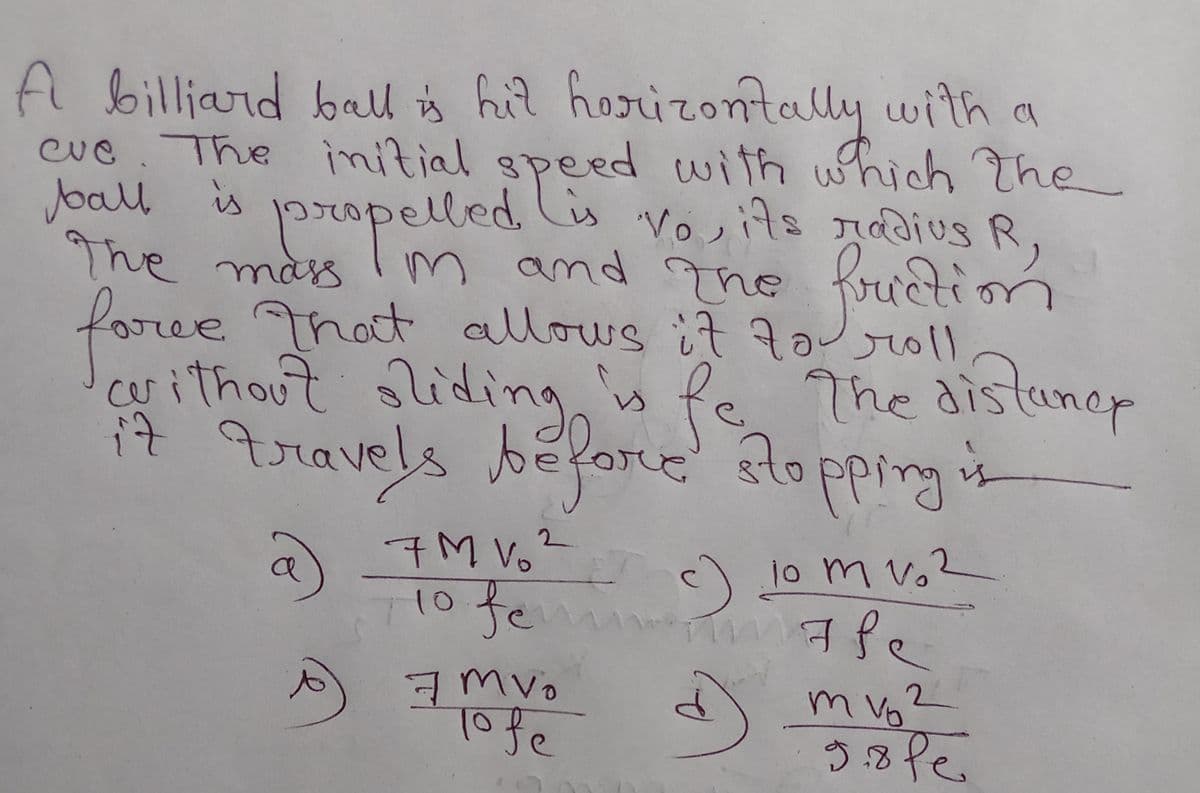 A billiard ball is hit horizontally with a
cue. The initial speed with which the
ball is propelled is V₀, its radius R,
The mass m and the friction
force that allows it to roll
without sliding is fe The distance
it travels before stopping is
a) 7 M V₀² / 10 fe
c) 10 m V₀² / 7 fe
b) 7 m V₀ / 10 fe
d) m V₀² / 9.8 fe